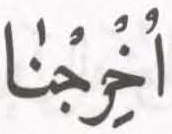 اُخْرِجْنَا